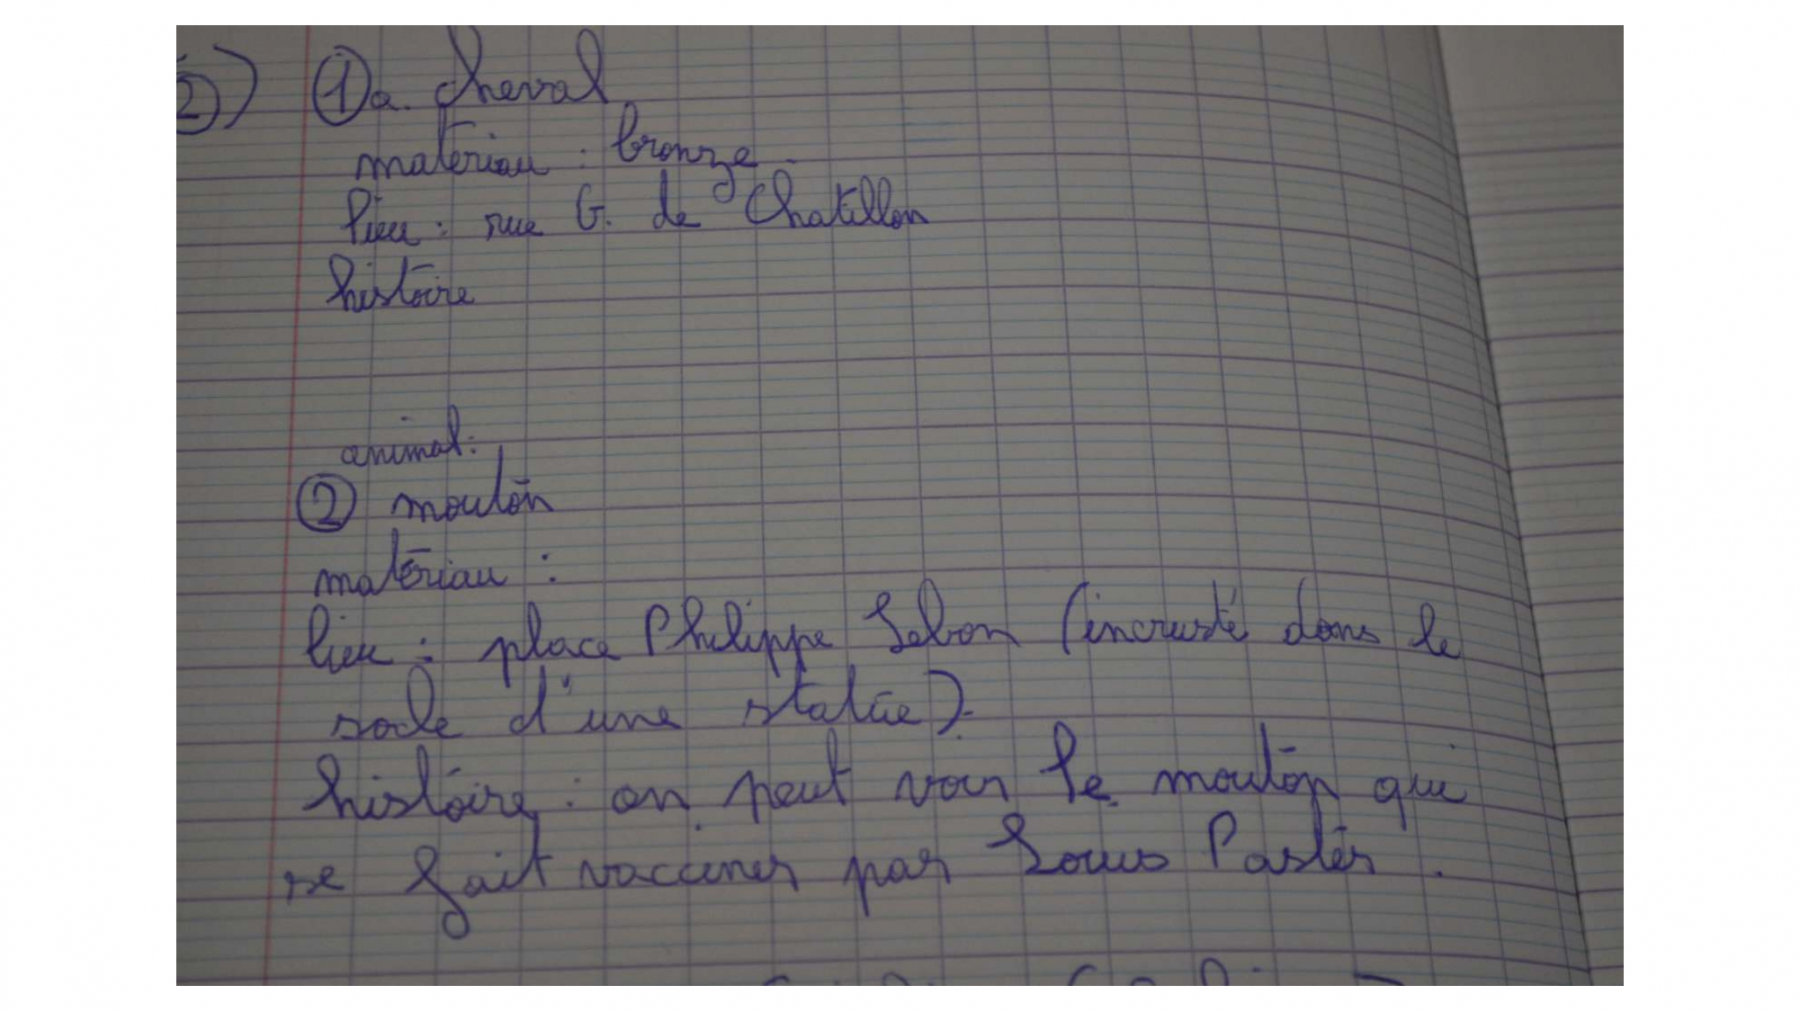 2) ① a. cheval
matériau : bronze
lieu : rue G. de Chatillon
histoire
animal :
② mouton
matériau :
lieu : place Philippe Lebon (incrusté dans le
socle d'une statue).
histoire : on peut voir le mouton qui
se fait vacciner par Louis Pastër.